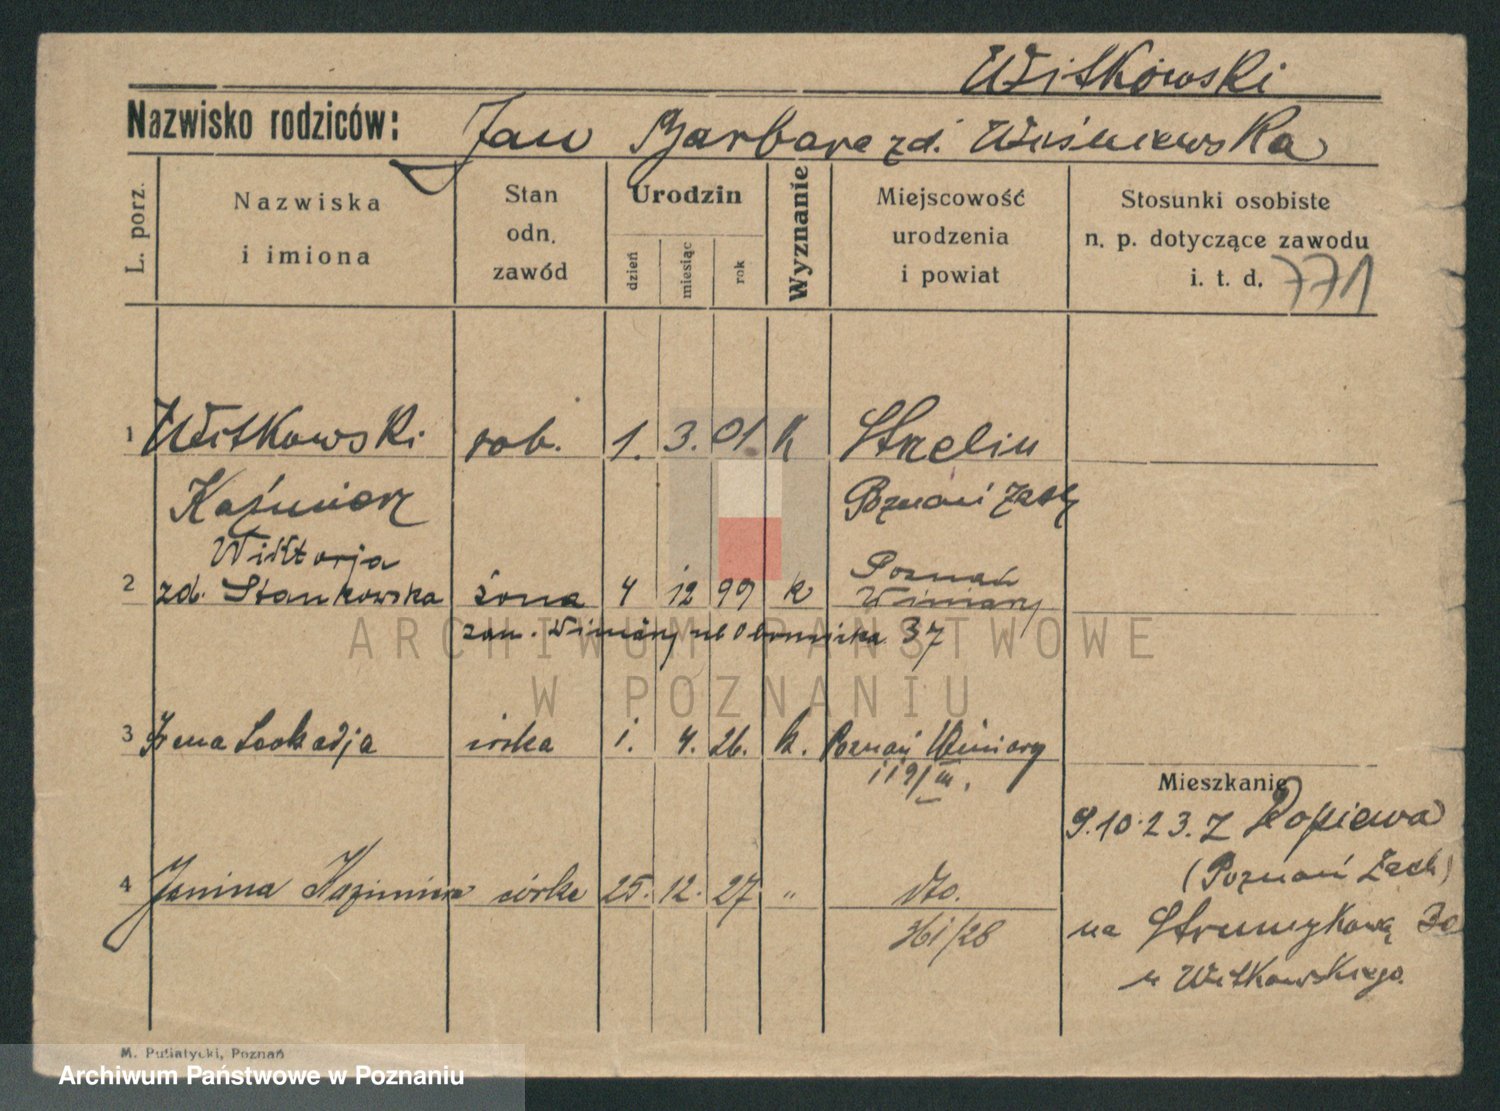 Witkowski
Nazwisko rodziców: Jan Barbara zd. Wiśniewska
L. porz.
Nazwiska
i imiona
Stan
odn.
zawód
Urodzin
dzień
miesiąc
rok
Wyznanie
Miejscowość
urodzenia
i powiat
Stosunki osobiste
n. p. dotyczące zawodu
i. t. d. 771
1 Witkowski rob. 1. 3. 01. K
Kaźmierz Poznań Zach
Wiktorja Poznań
2 zd. Stankowska żona 4 12 99 k Winiary
zam. Winiary ul Obornicka 37
3 Irena Leokadja córka 1. 4. 26. k. Poznań Winiary
119/III.
Mieszkanie
9.10.23. z Dopiewa
(Poznań Zach)
4 Janina Kazimiera córka 25. 12. 27 " dto.
na Strumykową 30
361/28
u Witkowskiego.
M. Putiatycki, Poznań
ARCHIWUM PAŃSTWOWE
W POZNANIU
Archiwum Państwowe w Poznaniu